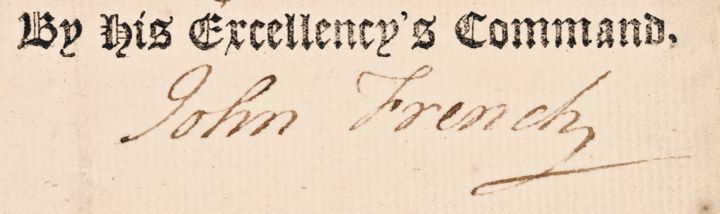 By His Excellency's Command.
John French